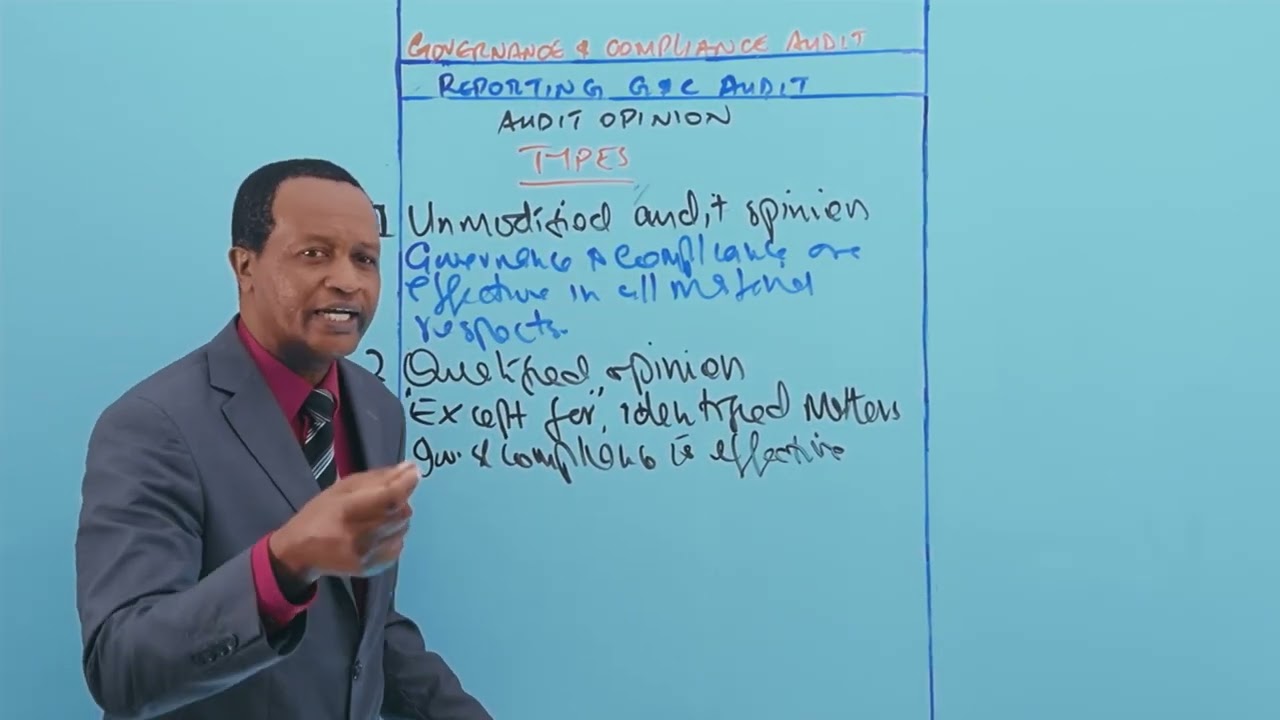 GOVERNANCE & COMPLIANCE AUDIT
REPORTING G&C AUDIT
AUDIT OPINION
TYPES
1 Unmodified audit opinion
Governance & compliance are
effective in all material
respects.
2 Qualified opinion
"Except for" identified matters
gov. & compliance is effective